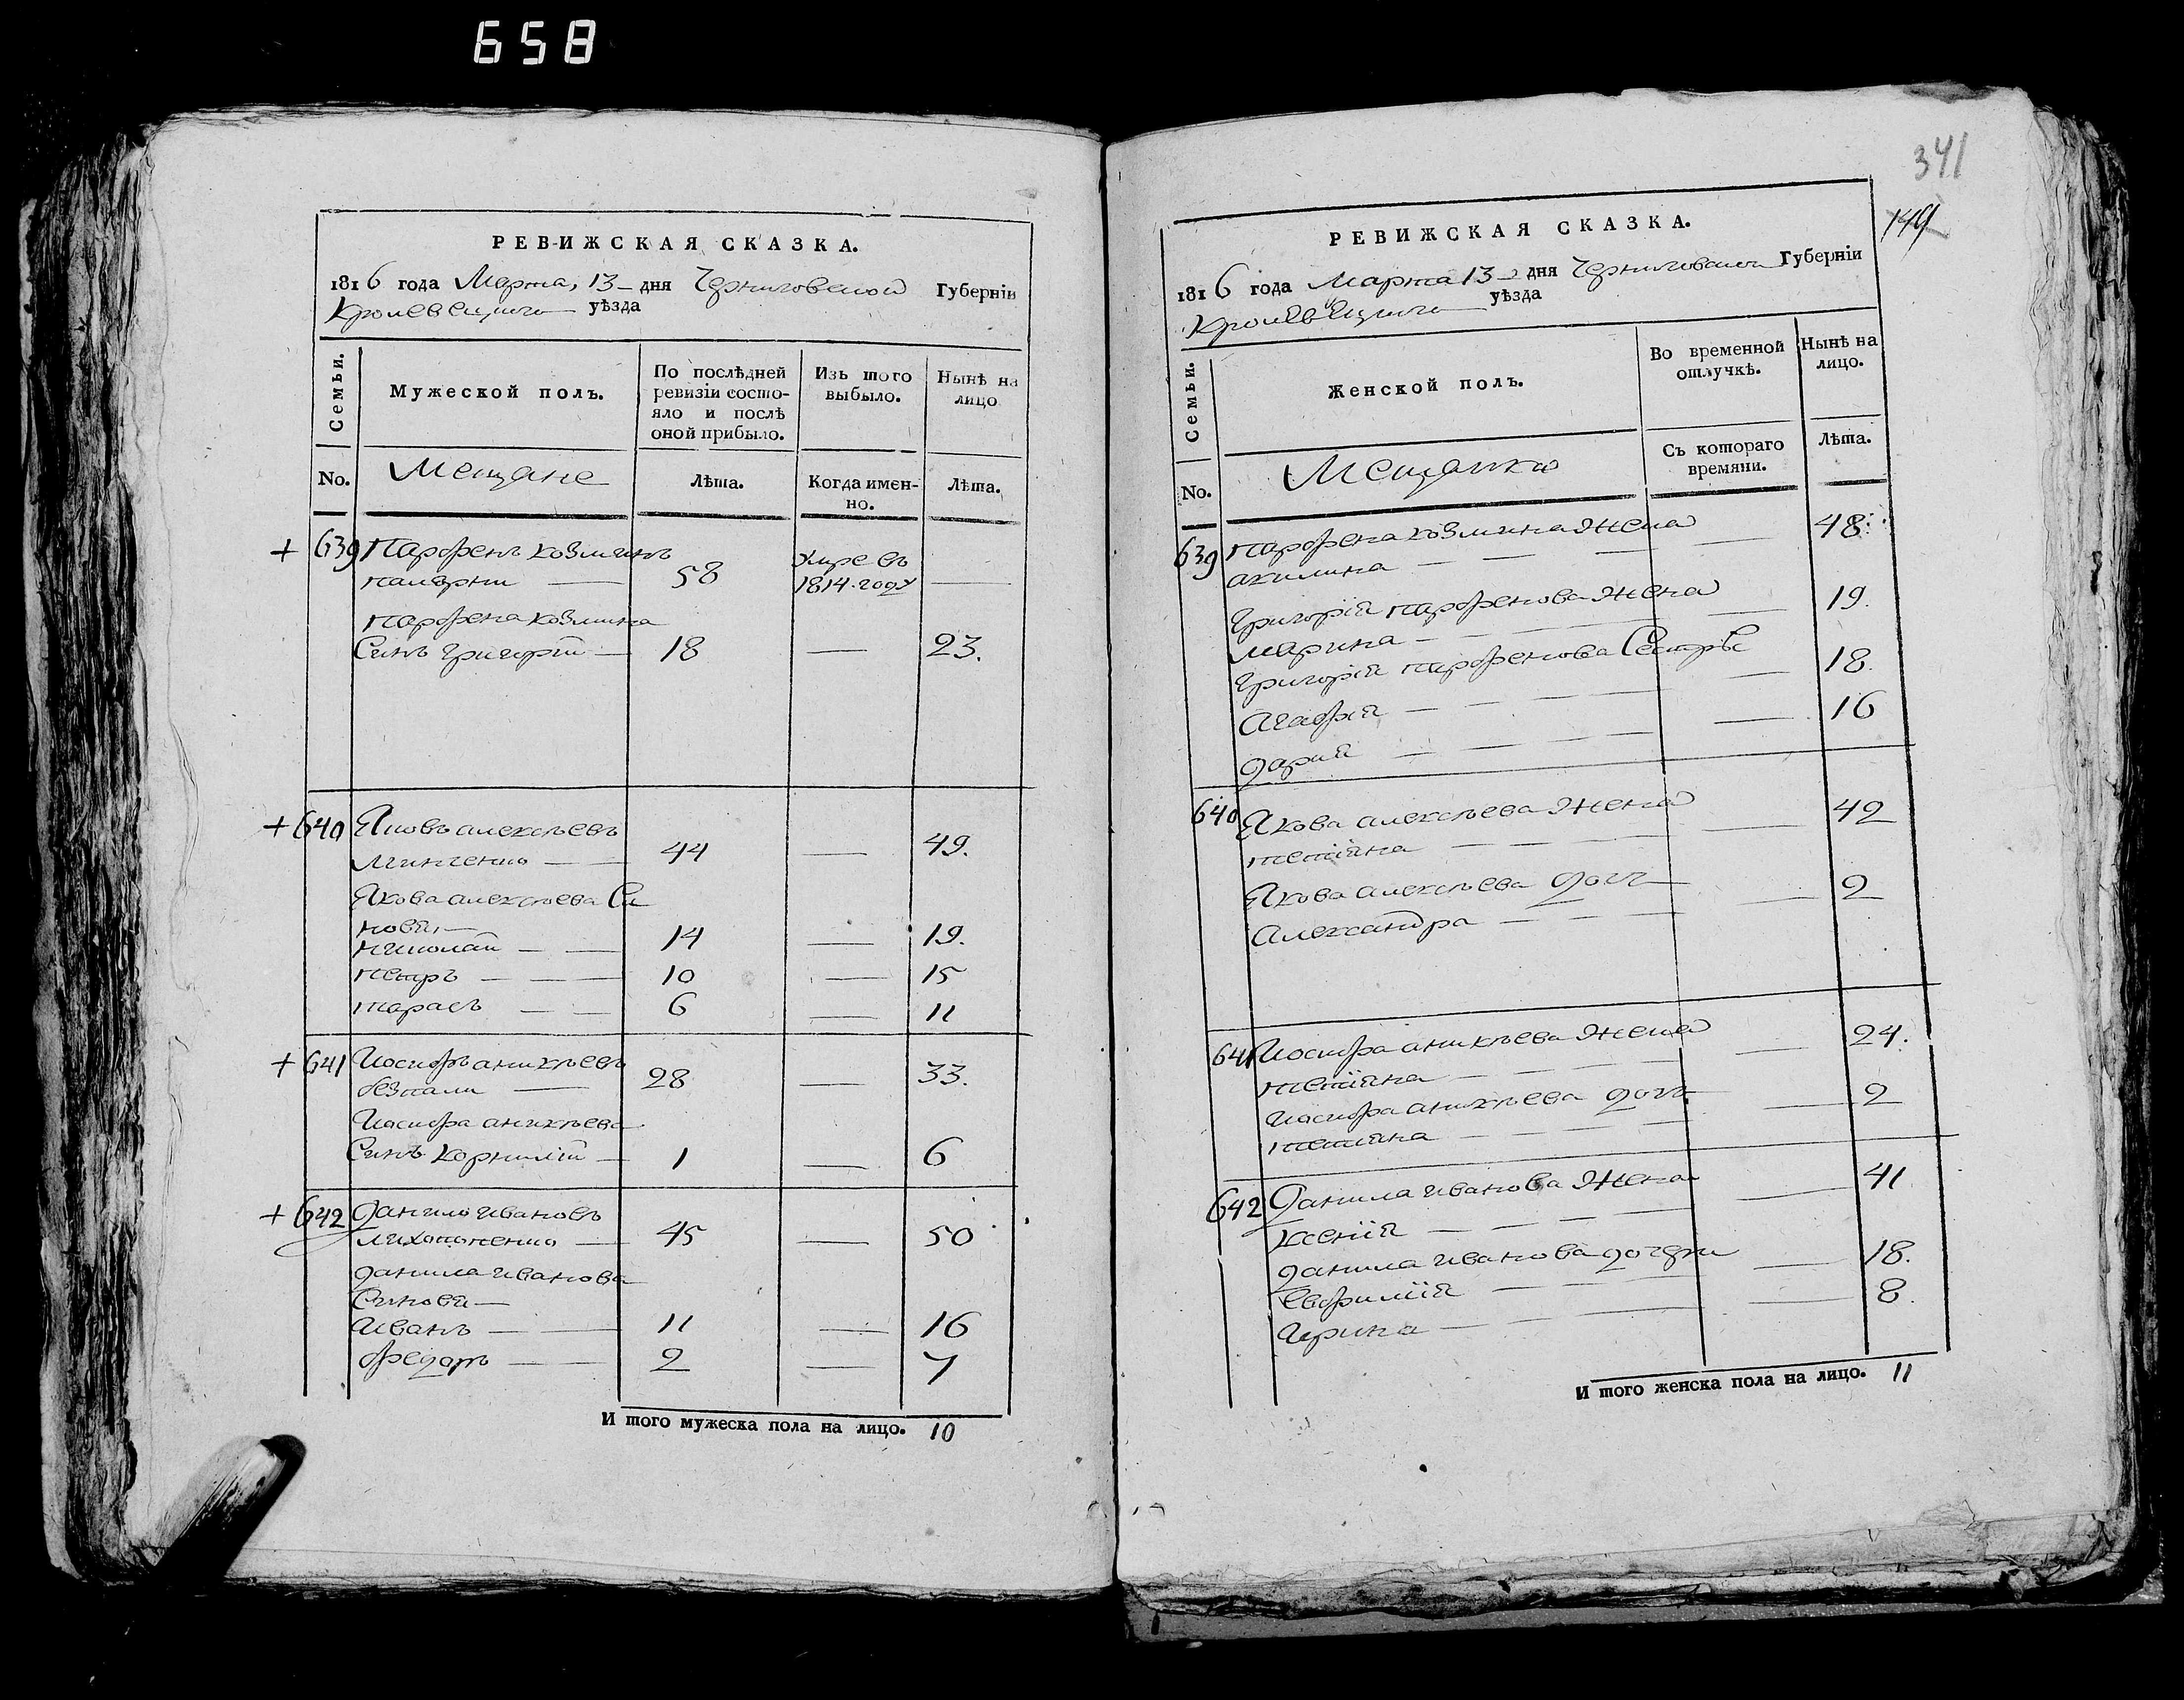 658
РЕВИЖСКАЯ СКАЗКА.
1816 года Марта, 13 дня Черниговской Губерніи
Кролевецкого уѣзда
Семьи.
Мужеской полъ.
По послѣдней ревизіи состо-
яло и послѣ
оной прибыло.
Изъ того
выбыло.
Нынѣ на
лицо
No.
Мещане
Лѣта.
Когда имен-
но.
Лѣта.
+ 639 Парфенъ козминъ
58
умре въ
1814 году
Парфена козмина
Синъ григорій 18 — 23.
+ 640 Яковъ алексѣевъ
Минченко — 44 — 49.
Якова алексѣева Си
новя,
николай — 14 — 19.
петръ — 10 — 15
тарасъ — 6 — 11
+ 641 Иосифъ аникѣевъ
безпали — 28 — 33.
Иосифа аникѣева
Синъ корнилій — 1 — 6
+ 642 Данило ивановъ
45 — 50
данила иванова
Синовя —
Иванъ — 11 — 16
федоръ — 2 — 7
И того мужеска пола на лицо. 10
341
149
РЕВИЖСКАЯ СКАЗКА.
1816 года Марта 13 дня Черниговской Губерніи
Кролевецкого уѣзда
Семьи.
Женской полъ.
Во временной
отлучкѣ.
Нынѣ на
лицо.
No.
Мещанки
Съ котораго
времяни.
Лѣта.
639 Парфена козмина Жена
акилина — 48.
Григорія парфенова Жена
марина — 19.
Григорія парфенова Сестры
Агафія — 18.
дарія — 16
640 Якова алексѣева Жена
тетіяна — 42
Якова алексѣева дочь
Александра — 2
641 Иосифа аникѣева Жена
тетіяна — 24.
Иосифа аникѣева дочь
тетіяна — 2
642 Данила иванова Жена
ксенія — 41
данила иванова дочери
Евфимія — 18.
Ирина — 8.
И того женска пола на лицо. 11